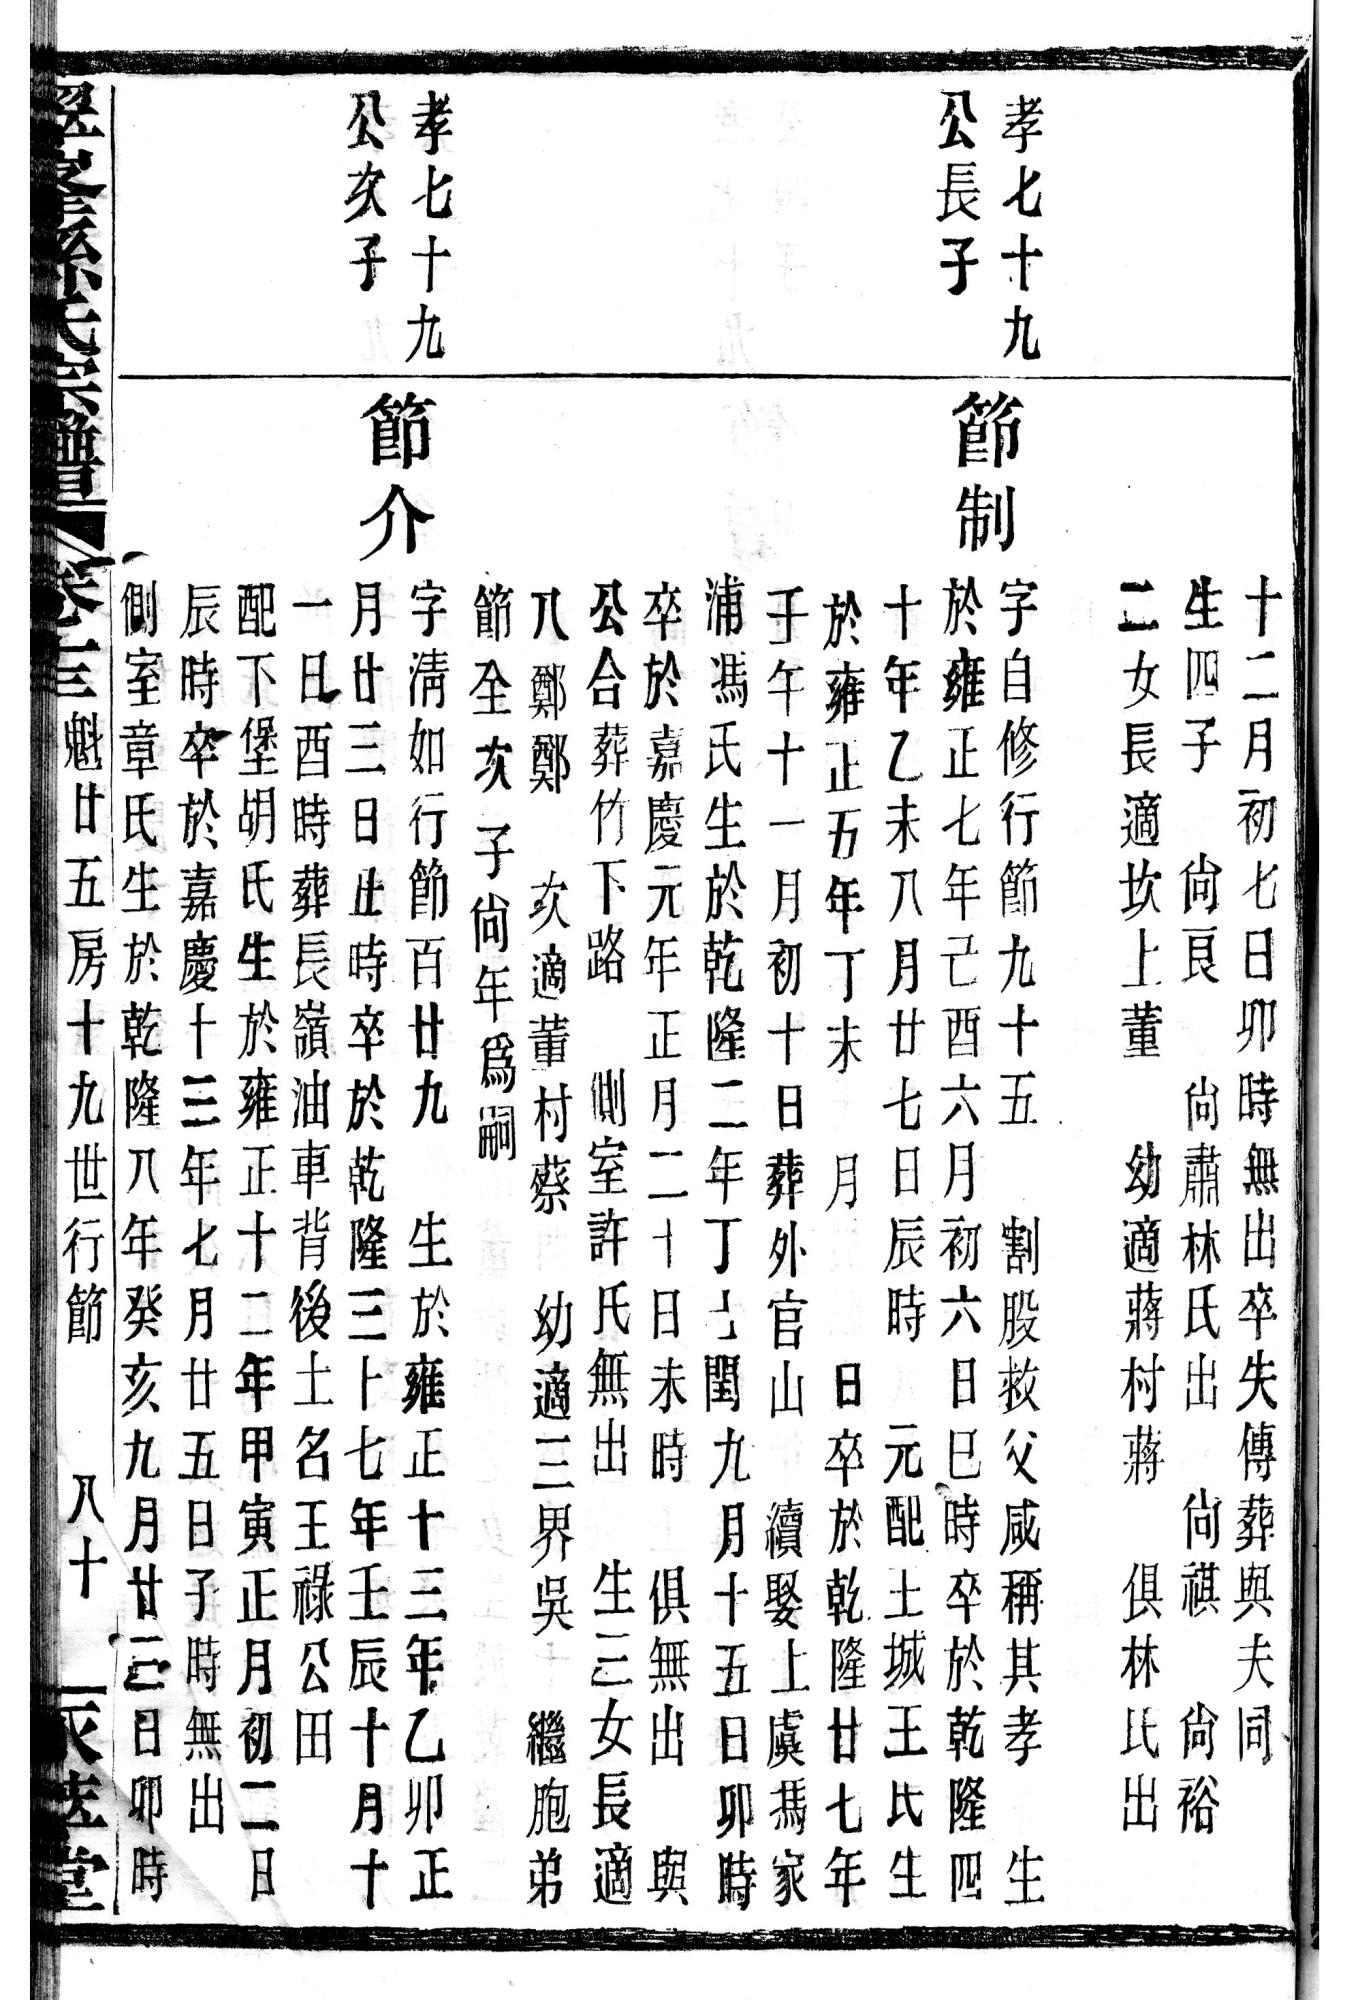 十二月初七日卯時無出卒失傳葬與夫同
生四子　尙良　尙肅林氏出　尙祺　尙裕
二女長適坎上董　幼適蔣村蔣　俱林氏出
孝七十九
公長子
節制
字自修行節九十五　割股救父咸稱其孝　生
於雍正七年己酉六月初六日巳時卒於乾隆四
十年乙未八月廿七日辰時　元配土城王氏生
於雍正五年丁未　月　日卒於乾隆廿七年
壬午十一月初十日葬外官山　續娶上虞馮家
浦馮氏生於乾隆二年丁巳閏九月十五日卯時
卒於嘉慶元年正月二十日未時　俱無出　與
公合葬竹下路　側室許氏無出　生三女長適
八鄭鄭　次適董村蔡　幼適三界吳　繼胞弟
節全次子尙年爲嗣
孝七十九
公次子
節介
字淸如行節百廿九　生於雍正十三年乙卯正
月廿三日丑時卒於乾隆三十七年壬辰十月十
一日酉時葬長嶺油車背後土名王祿公田
配下堡胡氏生於雍正十二年甲寅正月初二日
辰時卒於嘉慶十三年七月廿五日子時無出
側室章氏生於乾隆八年癸亥九月廿三日卯時
孫氏宗譜　卷十三　魁廿五房十九世行節　八十　堂